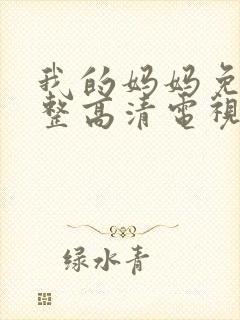 我的妈妈免
整高清電視
绿水青